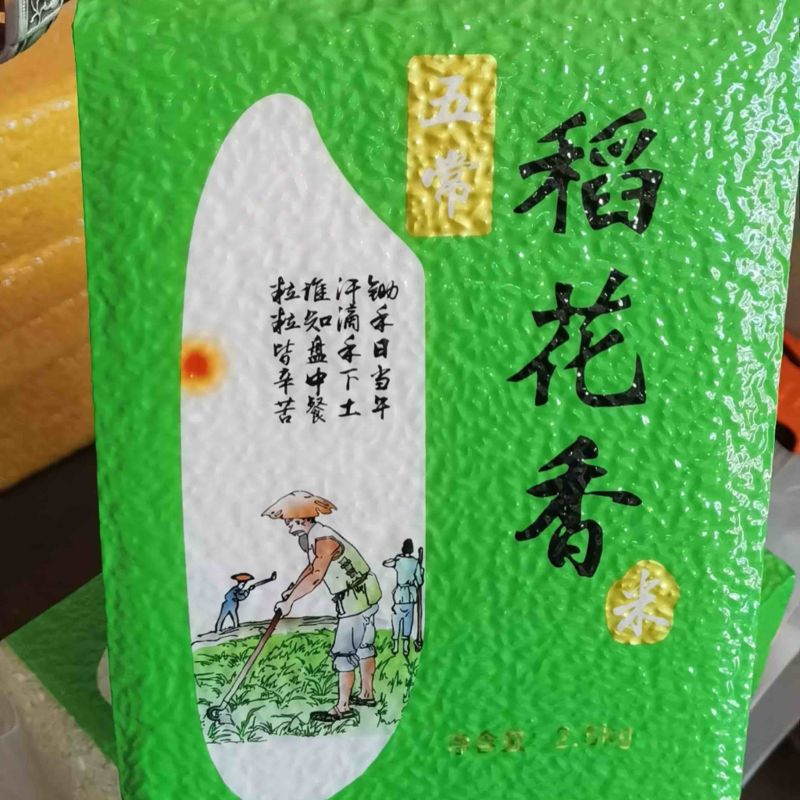 五常
稻花香
米
锄禾日当午
汗滴禾下土
谁知盘中餐
粒粒皆辛苦
净含量: 2.5kg